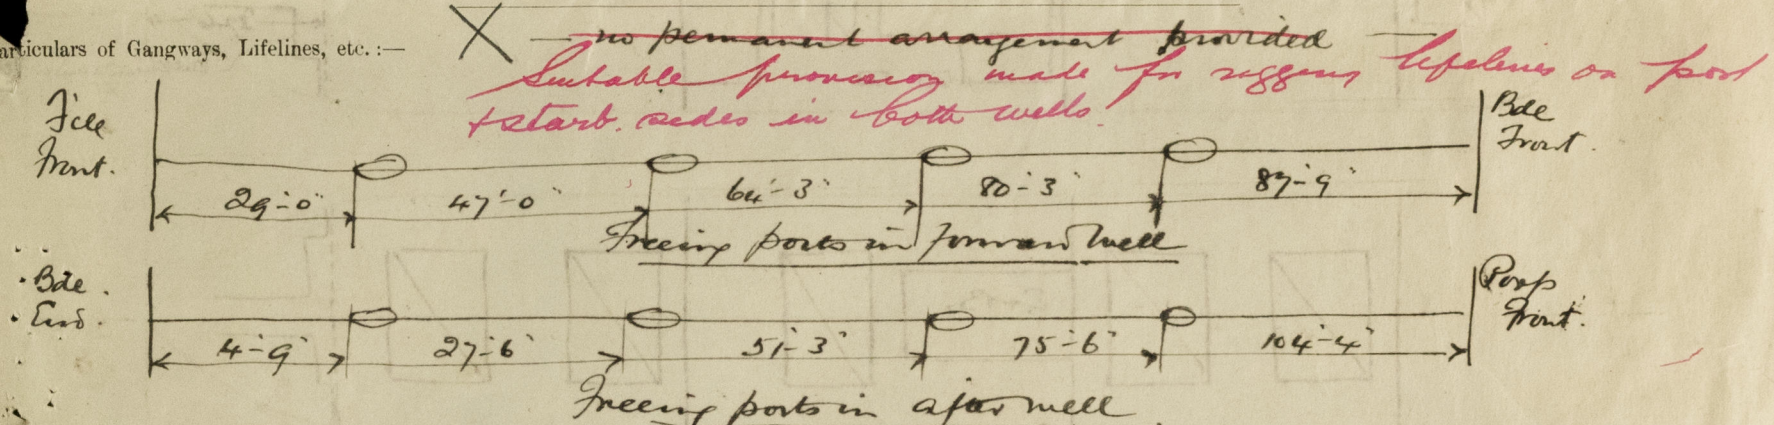 articulars of Gangways, Lifelines, etc. :—
X — no permanent arrangement provided —
Suitable provision made for rigging lifelines on port
+ starb. sides in both wells.
Fcle
Front.
Bde
Front.
29'-0" 47'-0" 64'-3" 80'-3" 87'-9"
Freeing ports in forward well
Bde.
End.
Poop
Front.
4'-9" 27'-6" 51'-3" 75'-6" 104'-4"
Freeing ports in after well